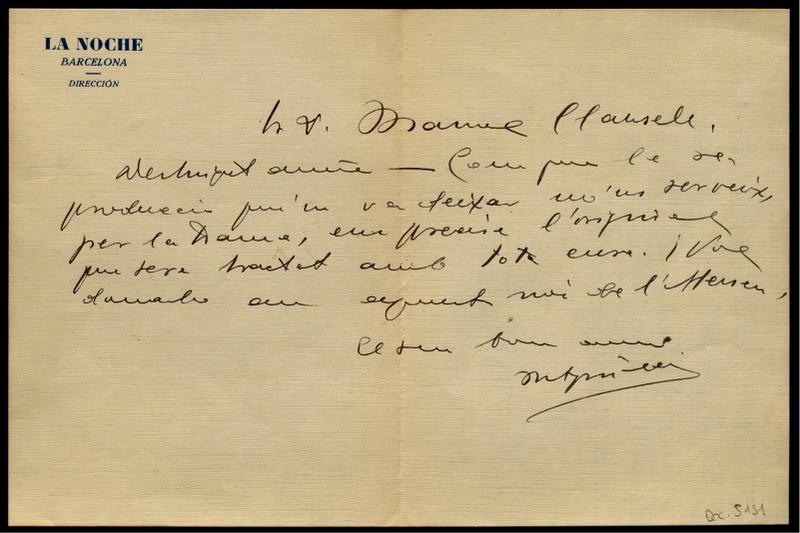 LA NOCHE
BARCELONA
DIRECCIÓN
Sr D. Manuel Clausells.
Distingit amic — Com que la re-
producció que'm va deixar no'ns serveix,
per la trama, em precisa l'original
que sera tractat amb tota cura. ¿Vol
donarlo an aquest noi de l'Ateneu,
el seu bon amic
Doc. 5131